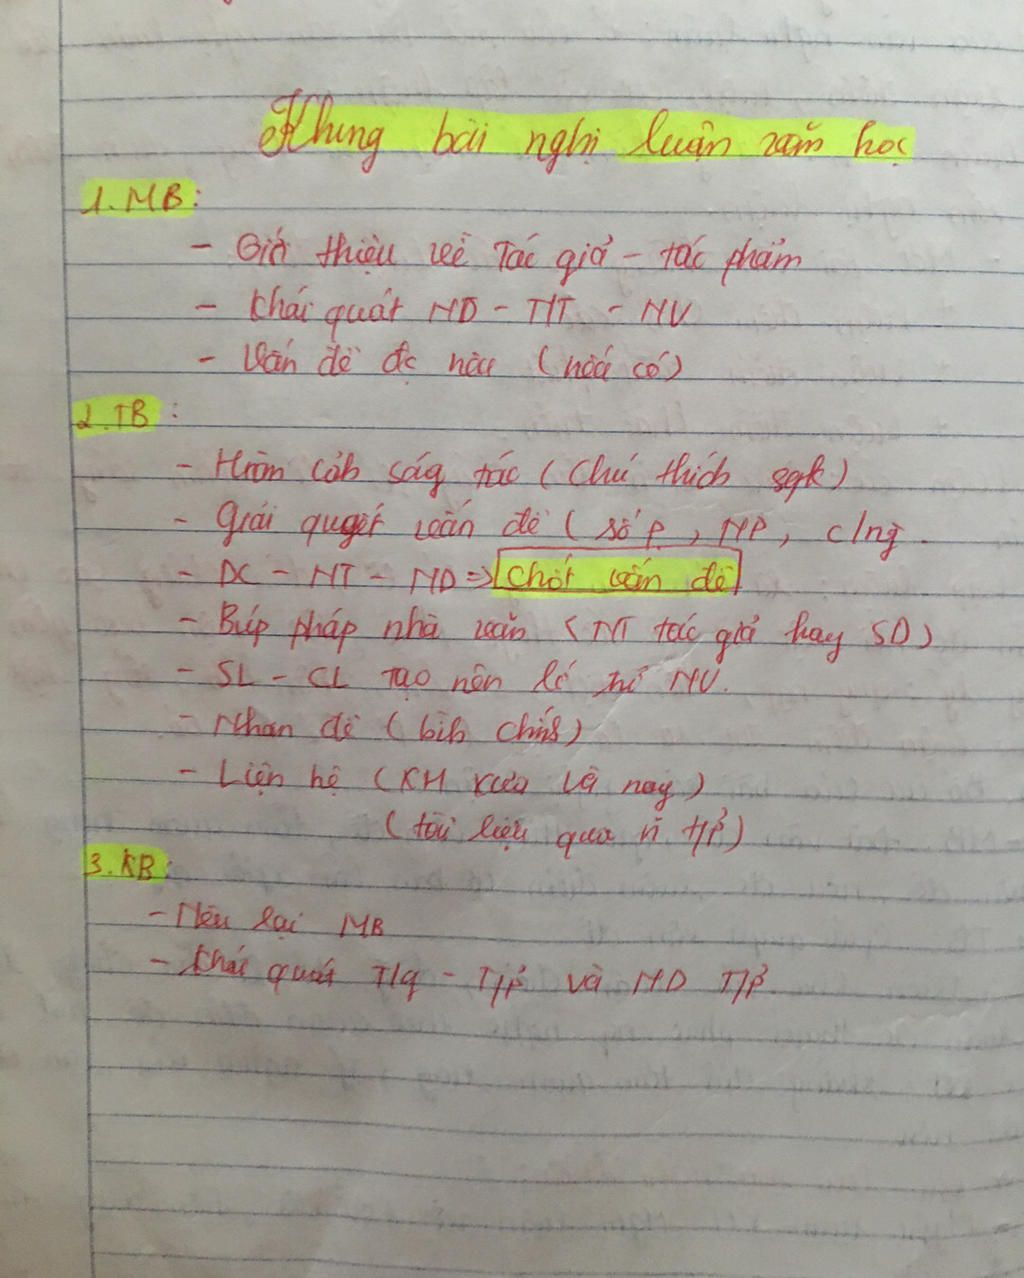 Khung bài nghị luận văn học
1. MB:
- Giới thiệu về Tác giả - tác phẩm
- Khái quát ND - NT - NV
- Vấn đề đc nêu (nếu có)
2. TB:
- Hoàn cảh ság tác (Chú thích sgk)
- Giải quyết vấn đề (số p, NP, c/ng
- DC - NT - ND => Chốt vấn đề
- Bút pháp nhà văn (NT tác giả hay SD)
- SL - CL tạo nên NV.
- Nhan đề (bih
- Liện hệ (XH xưa và nay)
(tài liệu qua n T/P)
3. KB:
- Nêu lại MB
- Khái quát T/g - T/P và ND T/P